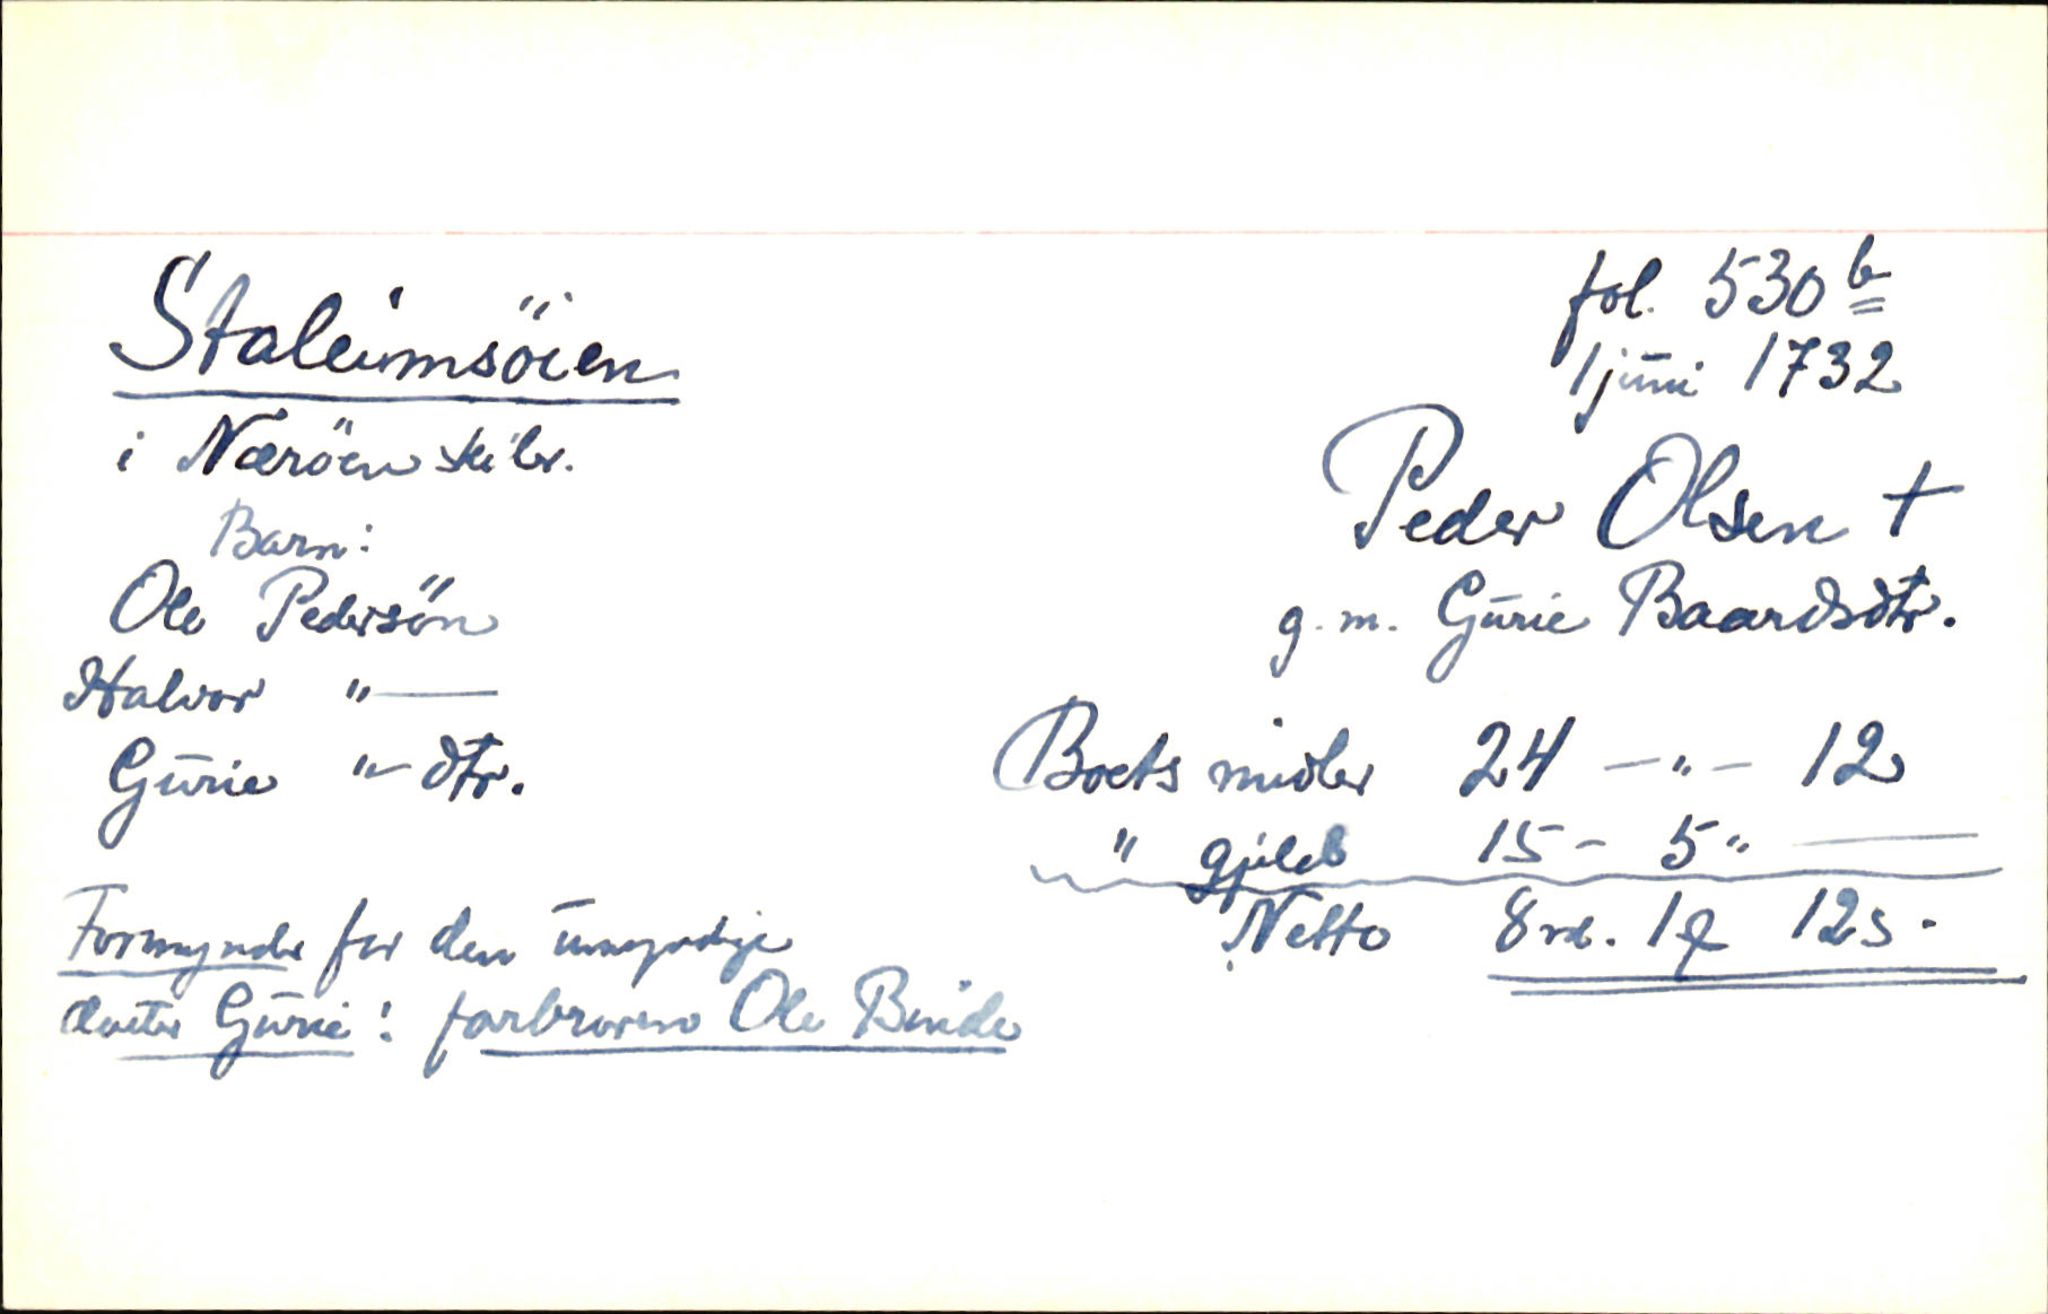 Staleimsöien
i Næröen skibr.
Barn:
Ole Pedersön
Halvor "—
Gurie "- dtr.
Formynder for den umyndige
dotter Gurie: farbroren Ole Binde
fol. 530 b
1 juni 1732
Peder Olsen †
g. m. Gurie Baardsdtr.
Boets midler 24 - " - 12
" gjeld 15 - 5 " —
Netto 8 rd. 1 q 12 s.